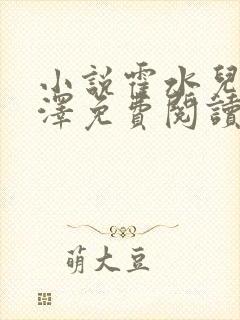 小說霍水兒
澤免費閱讀
萌大豆